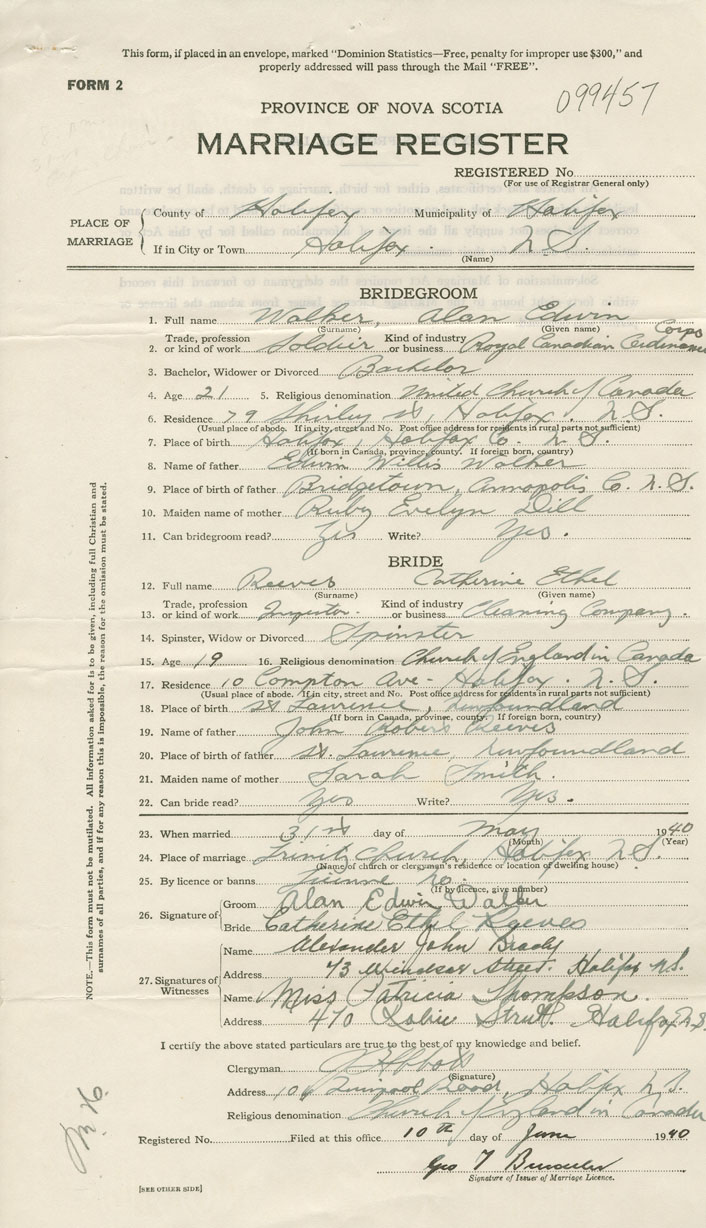 This form, if placed in an envelope, marked "Dominion Statistics—Free, penalty for improper use $300," and
properly addressed will pass through the Mail "FREE".
FORM 2
099457
PROVINCE OF NOVA SCOTIA
MARRIAGE REGISTER
REGISTERED No.
(For use of Registrar General only)
PLACE OF MARRIAGE
County of Halifax Municipality of Halifax
If in City or Town Halifax . N. S.
(Name)
BRIDEGROOM
1. Full name Walker, Alan Edwin
(Surname) (Given name)
2. Trade, profession or kind of work Soldier Kind of industry or business Royal Canadian Ordinance Corps
3. Bachelor, Widower or Divorced Bachelor
4. Age 21 5. Religious denomination United Church of Canada
6. Residence 79 Shirley St, Halifax. N. S.
(Usual place of abode. If in city, street and No. Post office address for residents in rural parts not sufficient)
7. Place of birth Halifax, Halifax Co. N. S.
(If born in Canada, province, county. If foreign born, country)
8. Name of father Edwin Willis Walker
9. Place of birth of father Bridgetown, Annapolis Co. N. S.
10. Maiden name of mother Ruby Evelyn Dill
11. Can bridegroom read? Yes Write? Yes.
BRIDE
12. Full name Reeves Catherine Ethel
(Surname) (Given name)
13. Trade, profession or kind of work Kind of industry or business Cleaning Company.
14. Spinster, Widow or Divorced Spinster
15. Age 19 16. Religious denomination Church of England in Canada
17. Residence 10 Compton Ave - Halifax. N. S.
(Usual place of abode. If in city, street and No. Post office address for residents in rural parts not sufficient)
18. Place of birth St. Lawrence, Newfoundland
(If born in Canada, province, county. If foreign born, country)
19. Name of father John Robert Reeves
20. Place of birth of father St. Lawrence, Newfoundland
21. Maiden name of mother Sarah Smith.
22. Can bride read? Yes Write? Yes.
23. When married 31st day of May 1940
(Month) (Year)
24. Place of marriage Trinity Church, Halifax N. S.
(Name of church or clergyman's residence or location of dwelling house)
25. By licence or banns License No.
(If by licence, give number)
26. Signature of
Groom Alan Edwin Walker
Bride Catherine Ethel Reeves
27. Signatures of Witnesses
Name Alexander John Brady
Address 73 Windsor Street. Halifax N.S.
Name Miss Patricia Thompson.
Address 470 Robie Street. Halifax N.S.
I certify the above stated particulars are true to the best of my knowledge and belief.
Clergyman
(Signature)
Address Liverpool Road, Halifax N.S.
Religious denomination Church of England in Canada
Registered No. Filed at this office 10th day of June 1940
Geo T
Signature of Issuer of Marriage Licence.
[SEE OTHER SIDE]
NOTE.—This form must not be mutilated. All information asked for is to be given, including full Christian and
surnames of all parties, and if for any reason this is impossible, the reason for the omission must be stated.